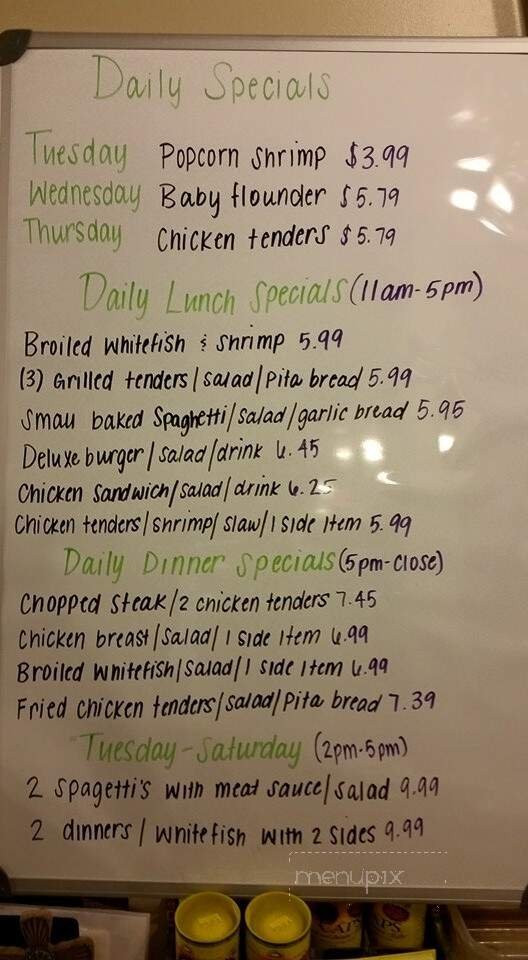 Daily Specials
Tuesday Popcorn shrimp $3.99
Wednesday Baby flounder $5.79
Thursday Chicken tenders $5.79
Daily Lunch Specials (11am-5pm)
Broiled whitefish & shrimp 5.99
(3) Grilled tenders/salad/pita bread 5.99
Small baked spaghetti/salad/garlic bread 5.95
Deluxe burger/salad/drink 6.45
Chicken sandwich/salad/drink 6.25
Chicken tenders/shrimp/slaw/1 side item 5.99
Daily Dinner Specials (5pm-close)
Chopped steak/2 chicken tenders 7.45
Chicken breast/salad/1 side item 6.99
Broiled whitefish/salad/1 side item 6.99
Fried chicken tenders/salad/pita bread 7.39
Tuesday-Saturday (2pm-5pm)
2 spagetti's with meat sauce/salad 9.99
2 dinners/whitefish with 2 sides 9.99
menupix